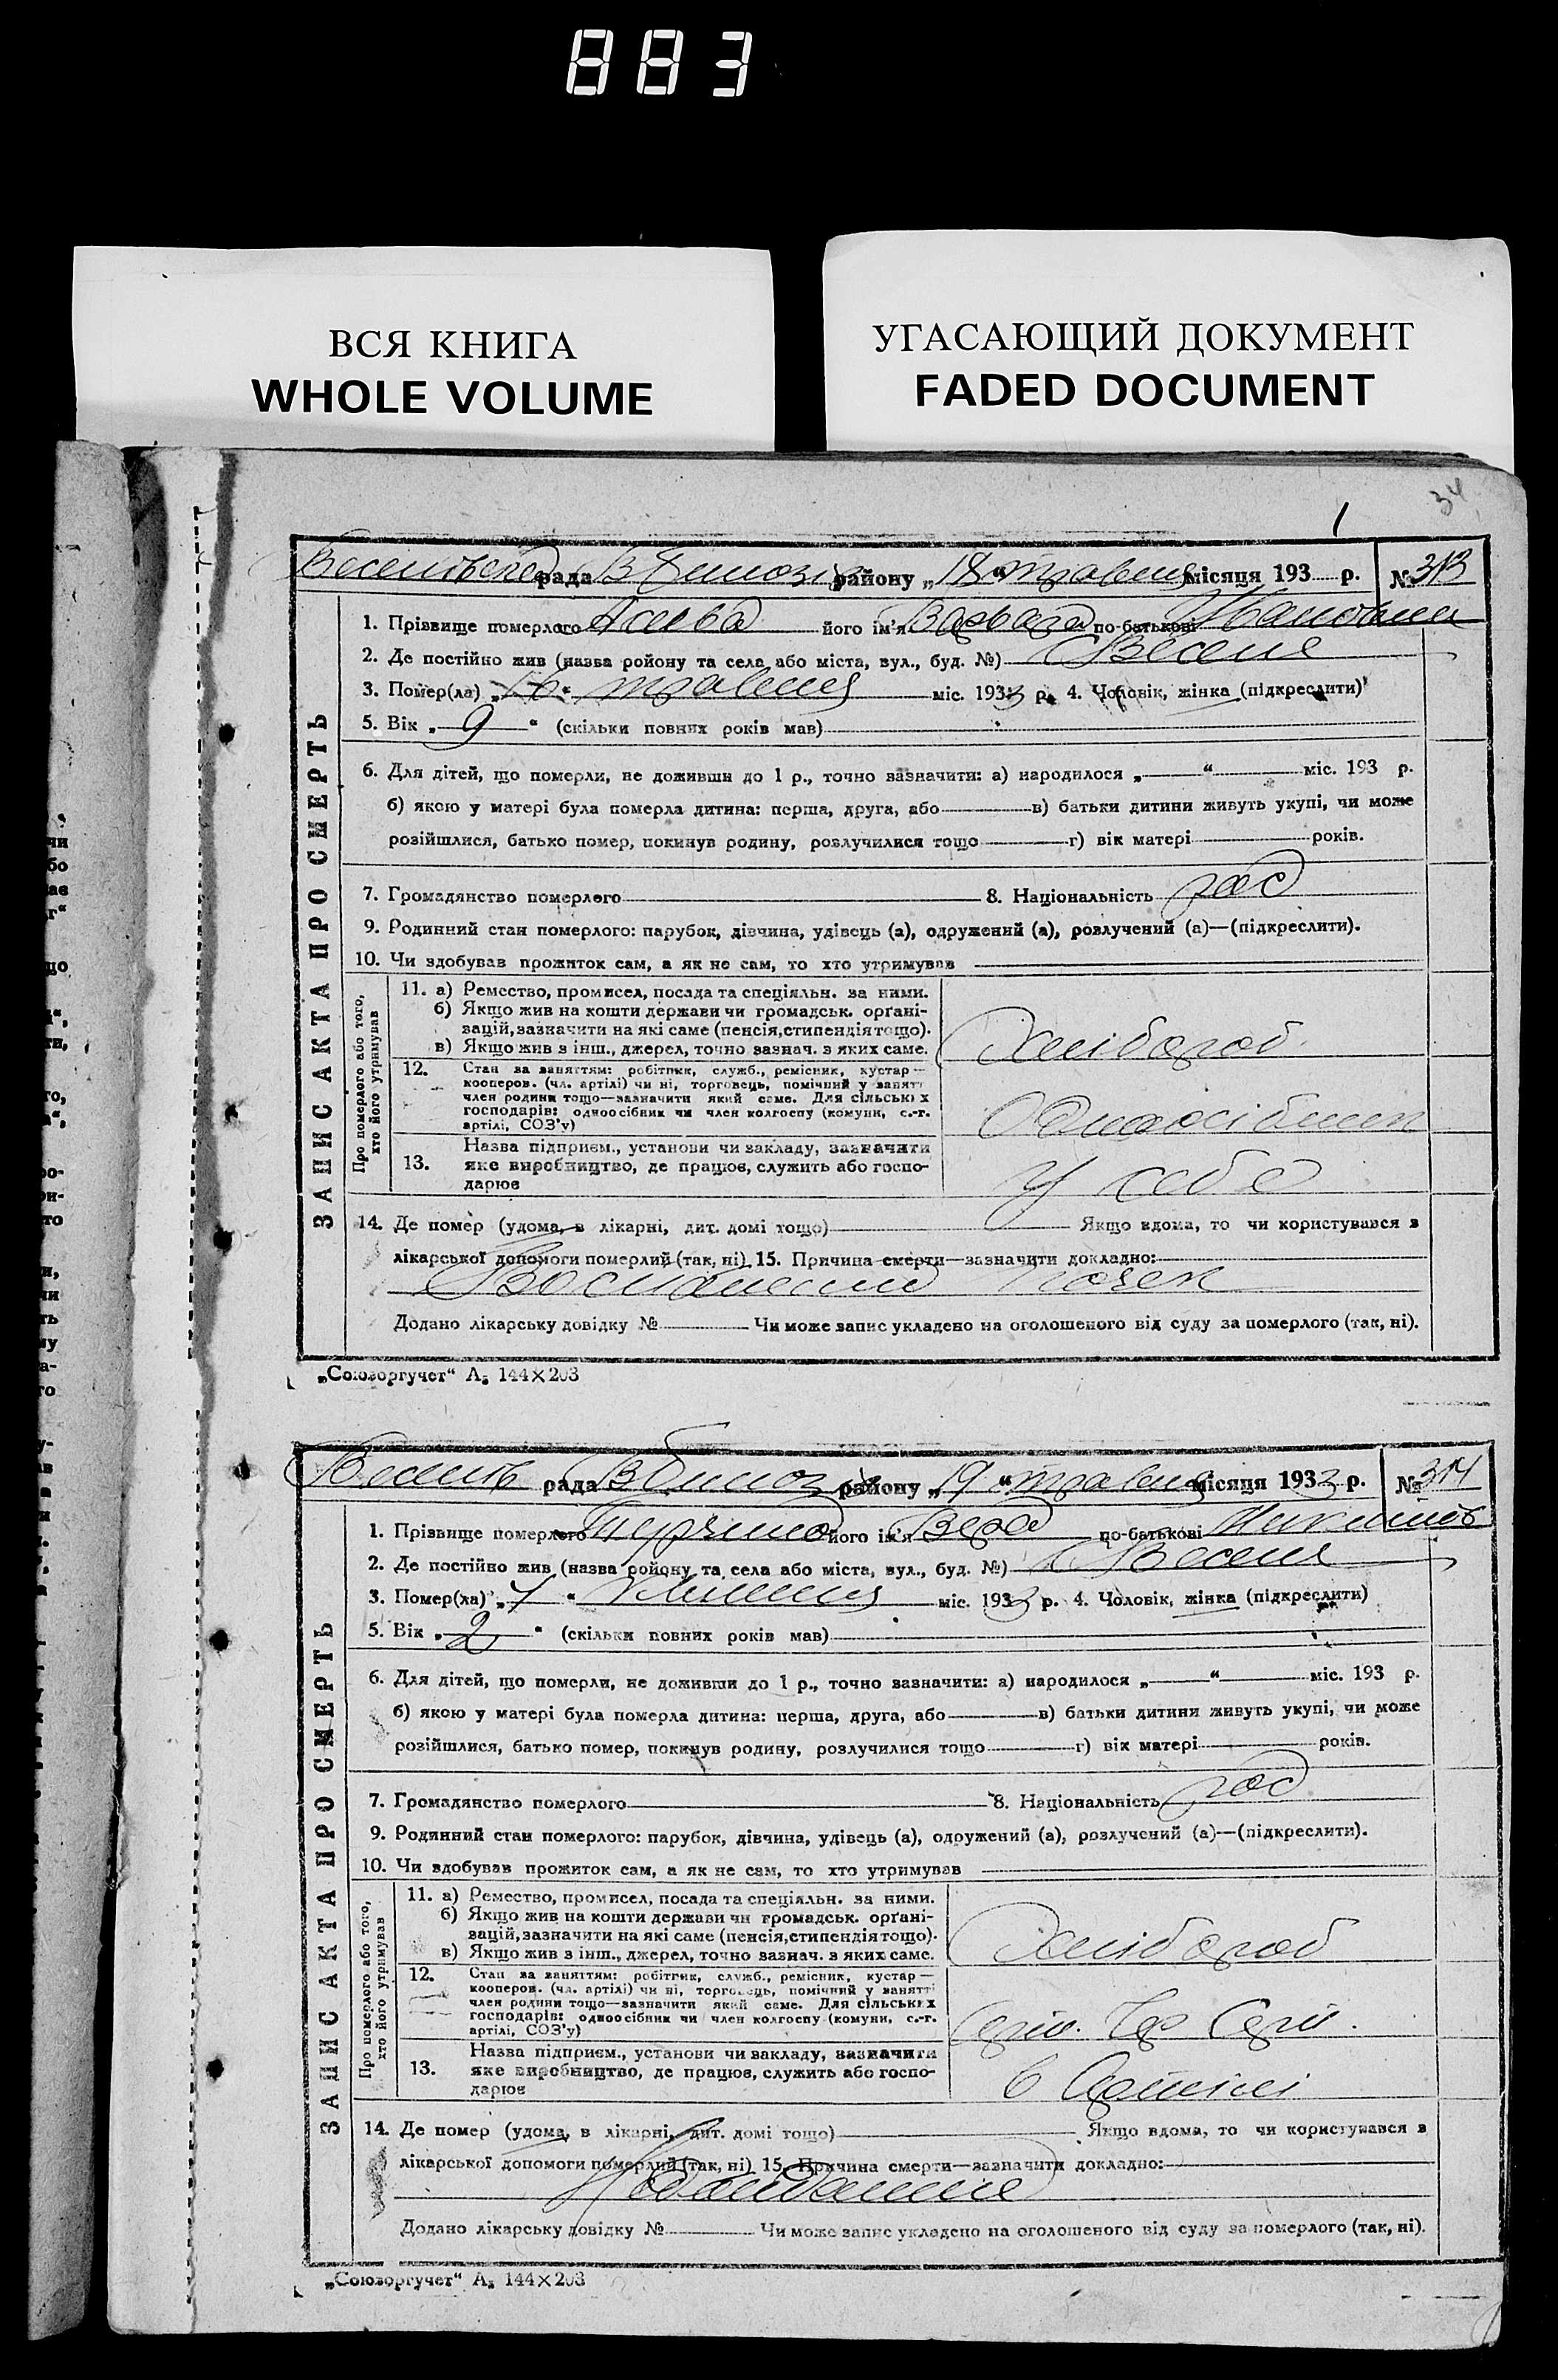 883
ВСЯ КНИГА
WHOLE VOLUME
УГАСАЮЩИЙ ДОКУМЕНТ
FADED DOCUMENT
34
рада району „18“ травня місяця 193 р. № 313
ЗАПИС АКТА ПРО СМЕРТЬ
1. Прізвище померлого його ім'я Варвара по-батькові Ивановна
2. Де постійно жив (назва ройону та села або міста, вул., буд. №) с Веселе
3. Помер(ла) „16“ травня міс. 1933 р. 4. Чоловік, жінка (підкреслити)
5. Вік „9“ (скільки повних років мав)
6. Для дітей, що померли, не доживши до 1 р., точно зазначити: а) народилося „ “ міс. 193 р.
б) якою у матері була померла дитина: перша, друга, або в) батьки дитини живуть укупі, чи може
розійшлися, батько помер, покинув родину, розлучилися тощо г) вік матері років.
7. Громадянство померлого 8. Національність рос
9. Родинний стан померлого: парубок, дівчина, удівець (а), одружений (а), розлучений (а)—(підкреслити).
10. Чи здобував прожиток сам, а як не сам, то хто утримував
Про померлого або того, хто його утримував
11. а) Ремество, промисел, посада та спеціяльн. за ними.
б) Якщо жив на кошти держави чи громадськ. орґані-
зацій, зазначити на які саме (пенсія, стипендія тощо).
в) Якщо жив з інш., джерел, точно зазнач. з яких саме.
Хлібороб
12. Стан за заняттям: робітник, служб., ремісник, кустар—
кооперов. (чл. артілі) чи ні, торговець, помічний у занятт
член родини тощо—зазначити який саме. Для сільських
господарів: одноосібник чи член колгоспу (комуни, с.-г.
артілі, СОЗ'у)
Одноосібник
13. Назва підприєм., установи чи закладу, зазначити
яке виробництво, де працює, служить або госпо-
дарює
У себе
14. Де помер (удома, в лікарні, дит. домі тощо) Якщо вдома, то чи користувався з
лікарської допомоги померлий (так, ні) 15. Причина смерти—зазначити докладно:
почек
Додано лікарську довідку № Чи може запис укладено на оголошеного від суду за померлого (так, ні).
„Союзоргучет“ А₅ 144×203
рада району „19“ травня місяця 1933 р. № 314
ЗАПИС АКТА ПРО СМЕРТЬ
1. Прізвище померлого його ім'я Вера по-батькові
2. Де постійно жив (назва ройону та села або міста, вул., буд. №) с Веселе
3. Помер(ла) „7“ міс. 1933 р. 4. Чоловік, жінка (підкреслити)
5. Вік „2“ (скільки повних років мав)
6. Для дітей, що померли, не доживши до 1 р., точно зазначити: а) народилося „ “ міс. 193 р.
б) якою у матері була померла дитина: перша, друга, або в) батьки дитини живуть укупі, чи може
розійшлися, батько помер, покинув родину, розлучилися тощо г) вік матері років.
7. Громадянство померлого 8. Національність рос
9. Родинний стан померлого: парубок, дівчина, удівець (а), одружений (а), розлучений (а)—(підкреслити).
10. Чи здобував прожиток сам, а як не сам, то хто утримував
Про померлого або того, хто його утримував
11. а) Ремество, промисел, посада та спеціяльн. за ними.
б) Якщо жив на кошти держави чи громадськ. орґані-
зацій, зазначити на які саме (пенсія, стипендія тощо).
в) Якщо жив з інш., джерел, точно зазнач. з яких саме.
Хлібороб
12. Стан за заняттям: робітник, служб., ремісник, кустар—
кооперов. (чл. артілі) чи ні, торговець, помічний у занятті
член родини тощо—зазначити який саме. Для сільських
господарів: одноосібник чи член колгоспу (комуни, с.-г.
артілі, СОЗ'у)
13. Назва підприєм., установи чи закладу, зазначити
яке виробництво, де працює, служить або госпо-
дарює
в Артілі
14. Де помер (удома, в лікарні, дит. домі тощо) Якщо вдома, то чи користувався з
лікарської допомоги померлий (так, ні) 15. Причина смерти—зазначити докладно:
Додано лікарську довідку № Чи може запис укладено на оголошеного від суду за померлого (так, ні).
„Союзоргучет“ А₅ 144×203